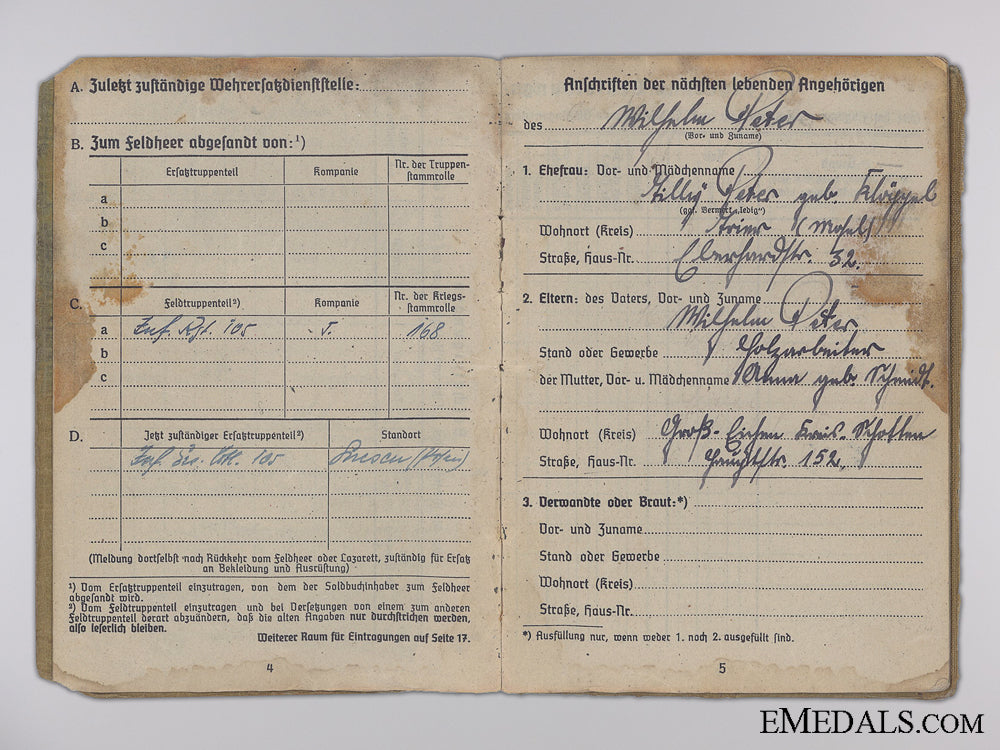 A. Zuletzt zuständige Wehrersatzdienststelle:
B. Zum Feldheer abgesandt von:¹)
Ersatztruppenteil Kompanie Nr. der Truppen-
stammrolle
a
b
c
C. Feldtruppenteil²) Kompanie Nr. der Kriegs-
stammrolle
a Inf. Rgt. 105 5. 168
b
c
D. Jetzt zuständiger Ersatztruppenteil²) Standort
Inf. Ers. Btl. 105
(Meldung dortselbst nach Rückkehr vom Feldheer oder Lazarett, zuständig für Ersatz
an Bekleidung und Ausrüstung)
¹) Vom Ersatztruppenteil einzutragen, von dem der Soldbuchinhaber zum Feldheer
abgesandt wird.
²) Vom Feldtruppenteil einzutragen und bei Versetzungen von einem zum anderen
Feldtruppenteil derart abzuändern, daß die alten Angaben nur durchstrichen werden,
also leserlich bleiben.
Weiterer Raum für Eintragungen auf Seite 17.
4
Anschriften der nächsten lebenden Angehörigen
des Wilhelm Peter
(Vor- und Zuname)
1. Ehefrau: Vor- und Mädchenname
Tilly Peter geb. Klöppel
(ggf. Vermerk „ledig")
Wohnort (Kreis) Trier (Mosel)
Straße, Haus-Nr. Eberhardstr. 32.
2. Eltern: des Vaters, Vor- und Zuname
Wilhelm Peter
Stand oder Gewerbe Holzarbeiter
der Mutter, Vor- u. Mädchenname Anna geb. Schmidt.
Wohnort (Kreis) Groß-Eichen Kreis-Schotten
Straße, Haus-Nr. Hauptstr. 152.
3. Verwandte oder Braut:*)
Vor- und Zuname
Stand oder Gewerbe
Wohnort (Kreis)
Straße, Haus-Nr.
*) Ausfüllung nur, wenn weder 1. noch 2. ausgefüllt sind.
5
EMEDALS.COM